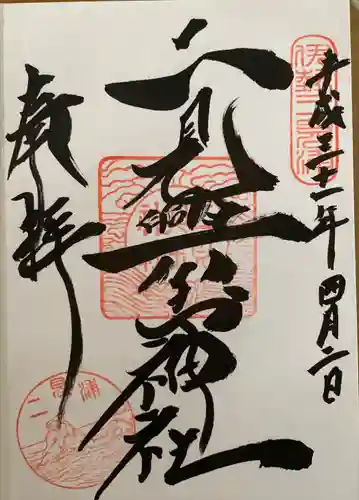 平成三十一年四月二日
伊勢二見浦
二見興玉神社
奉拝
二見浦